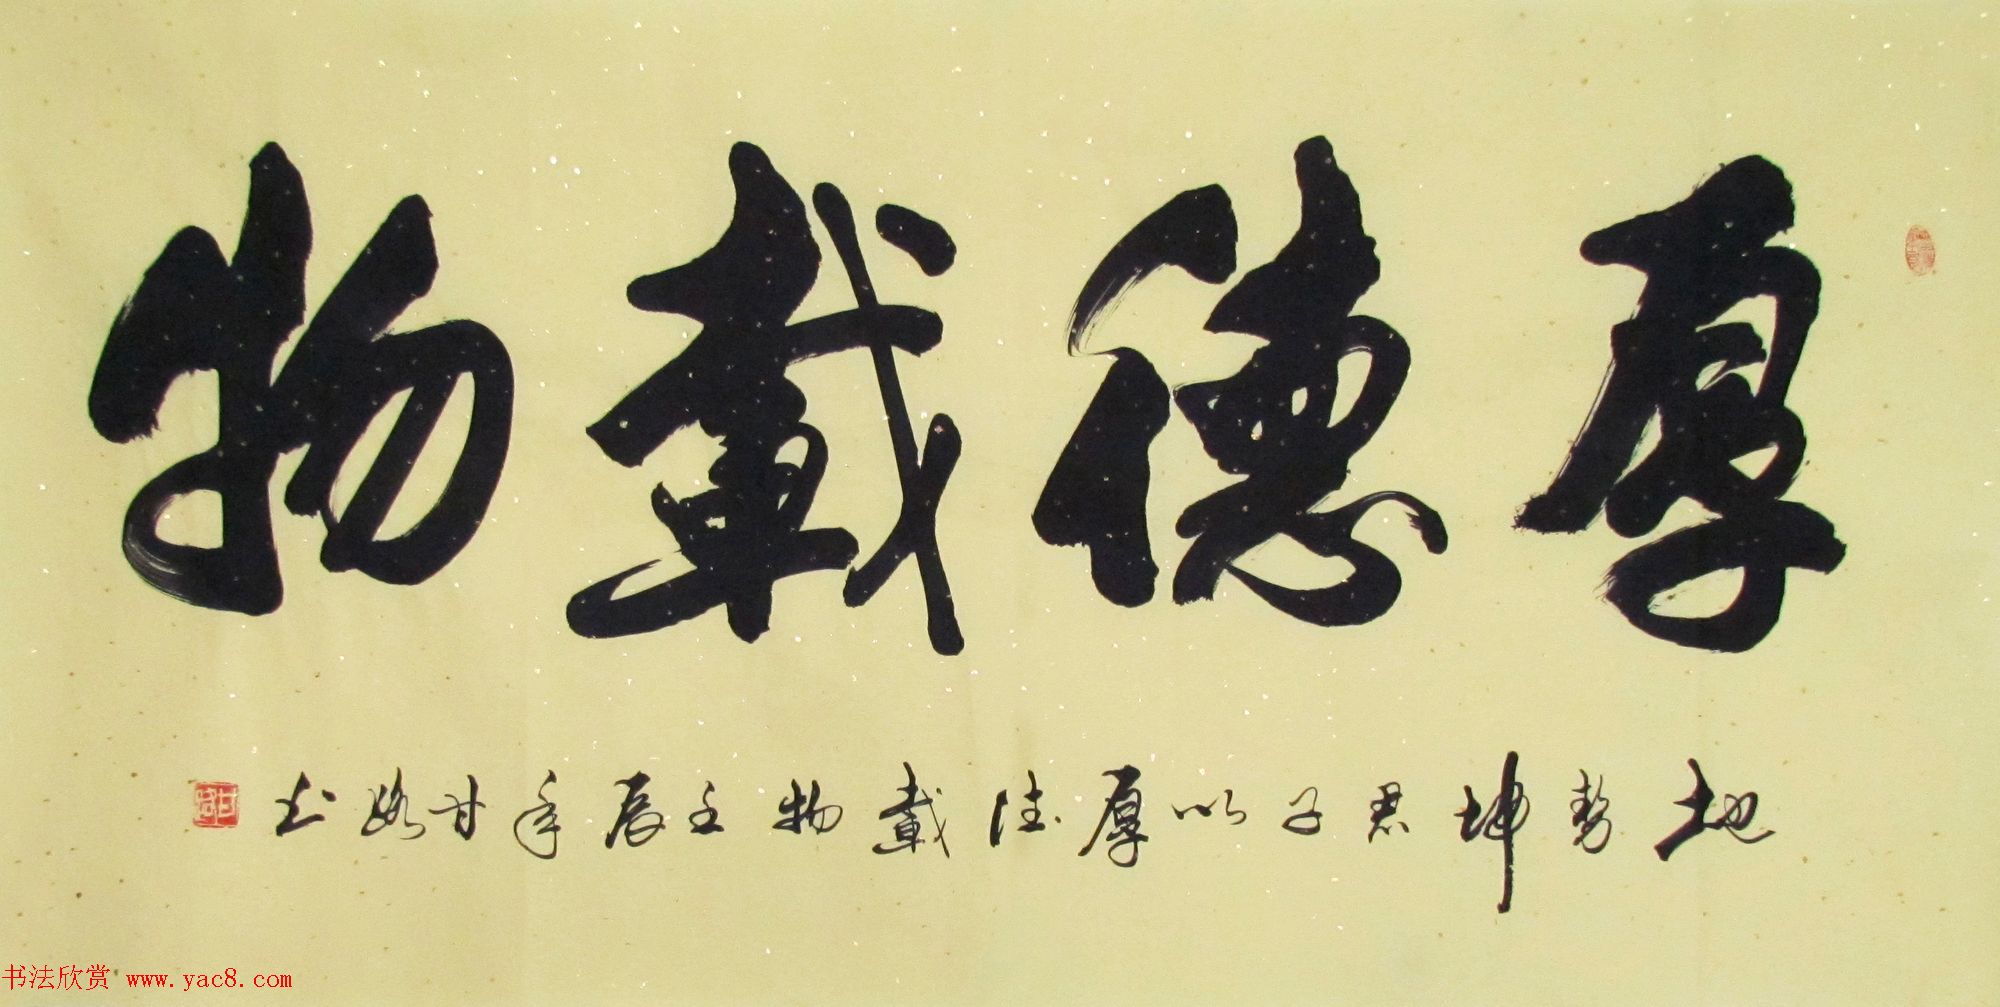 厚德載物
地势坤君子以厚德載物壬辰年甘路书
书法欣赏 www.yac8.com